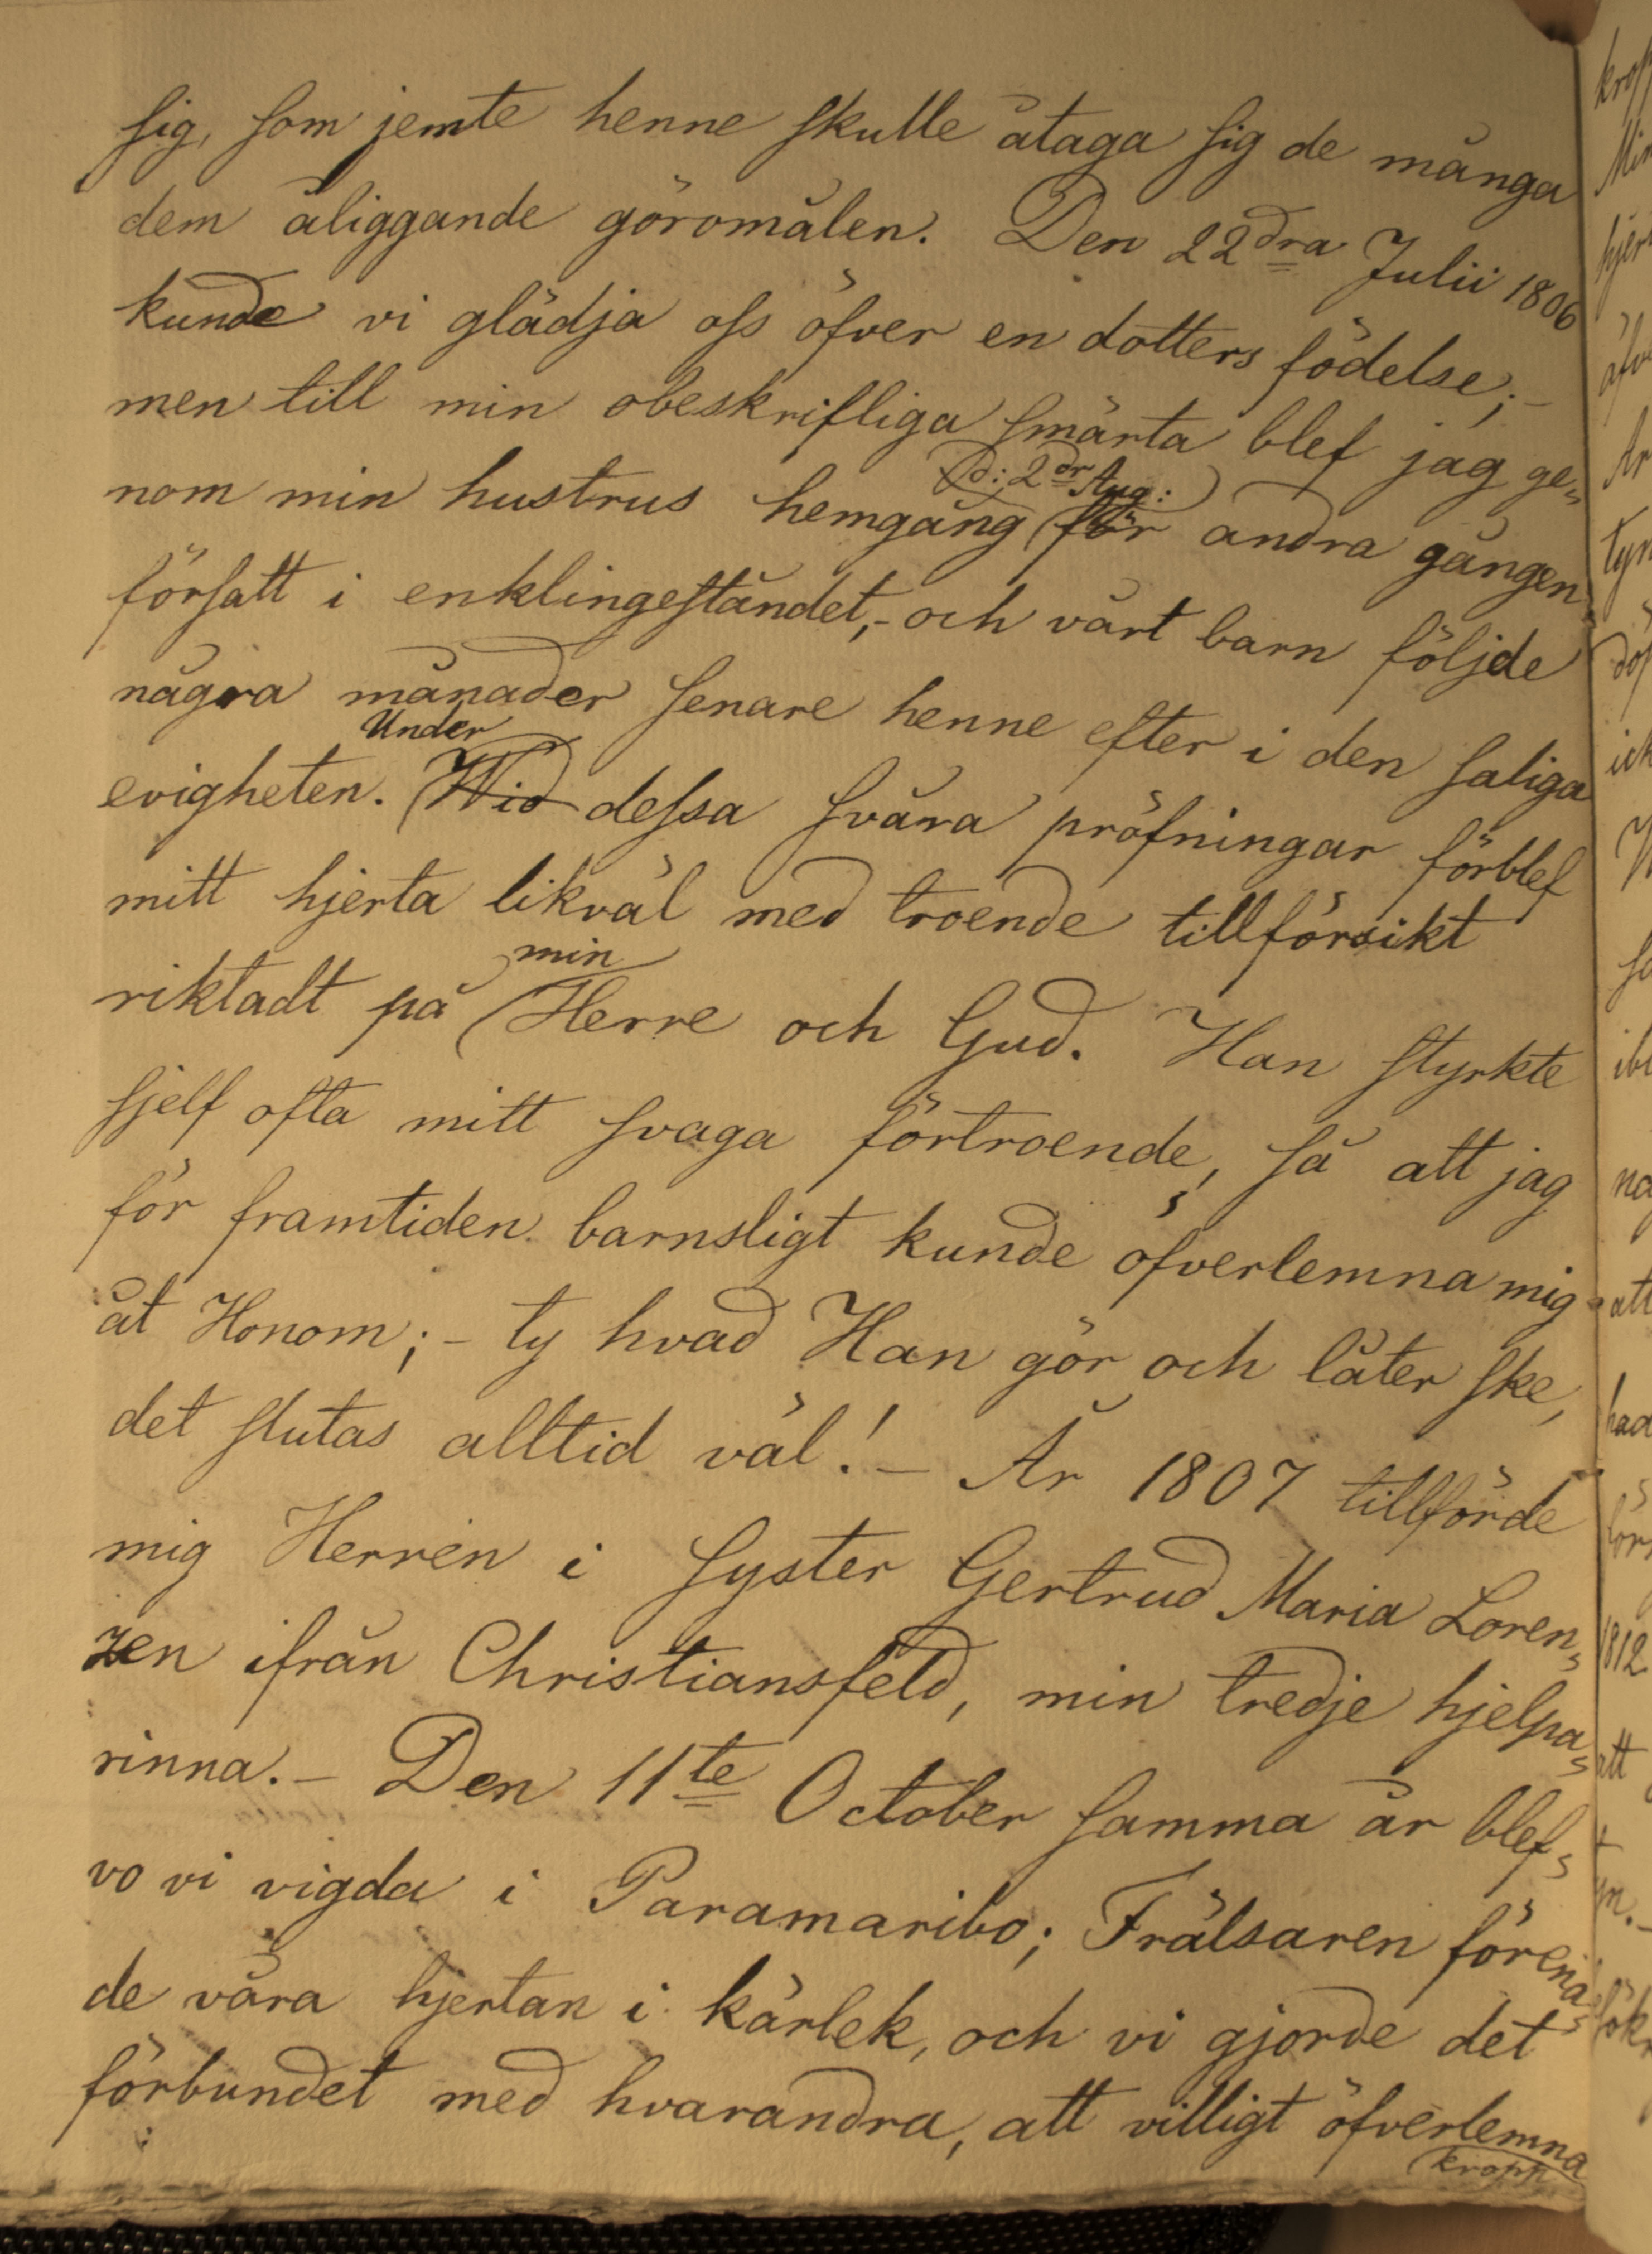 sig, som jemte henne skulle åtaga sig de många
dem åliggande göromålen. Den 22dra Julii 1806
kunde vi glädja oss öfver en dotters födelse; –
men till min obeskrifliga smärta blef jag ge=
(d: 2dr Aug:)
nom min hustrus hemgång för andra gången
försatt i enklingeståndet, – och vårt barn följde
några månader senare henne efter i den saliga
Under
evigheten. Wid dessa svåra pröfningar förblef
mitt hjerta likväl med troende tillförsikt
min
riktadt på Herre och Gud. Han styrkte
sjelf ofta mitt svaga förtroende, så att jag
för framtiden barnsligt kunde öfverlemna mig
åt Honom; – ty hvad Han gör och låter ske,
det slutas alltid väl! – År 1807 tillförde
mig Herren i syster Gertrud Maria Loren=
zen ifrån Christiansfeld, min tredje hjelpa=
rinna. – Den 11te October samma år blef=
vo vi vigda i Paramaribo; Frälsaren förena=
de våra hjertan i kärlek, och vi gjorde det
förbundet med hvarandra, att villigt öfverlemna
kropp